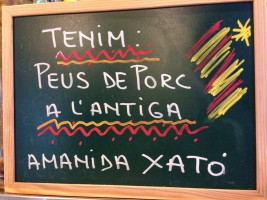 TENIM:
PEUS DE PORC
A L'ANTIGA
AMANIDA XATÓ